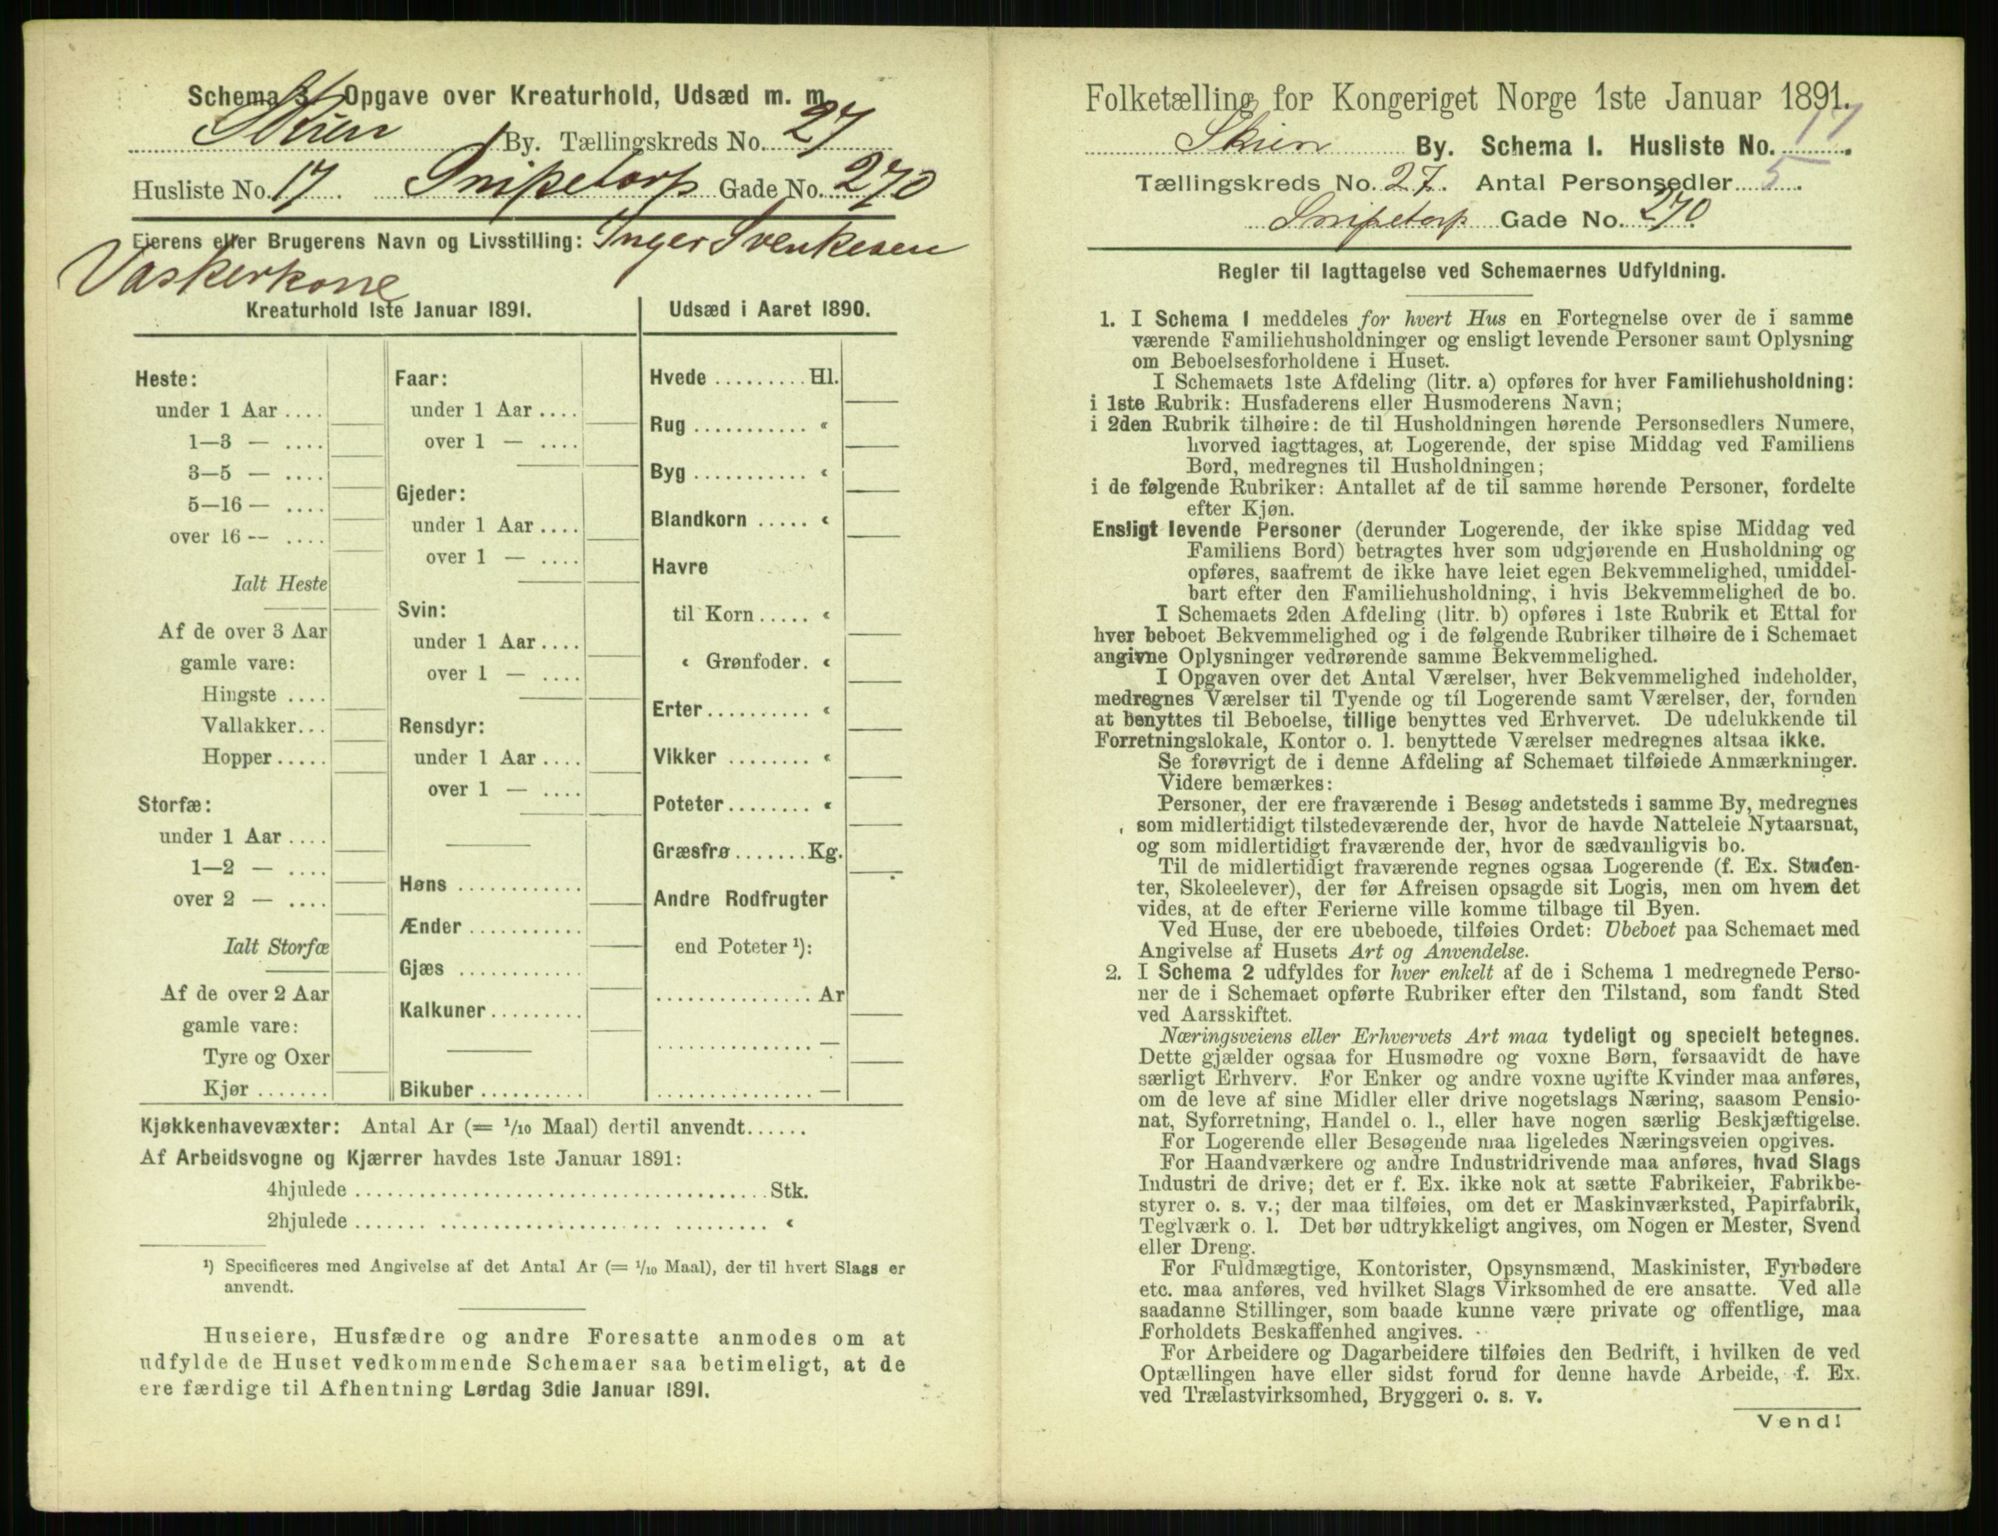 Schema 3. Opgave over Kreaturhold, Udsæd m. m.
Skien By. Tællingskreds No. 27
Husliste No. 17. Snipetorp Gade No. 270
Eierens eller Brugerens Navn og Livsstilling: Inger Svenkesen
Vaskerkone
Kreaturhold 1ste Januar 1891.
Heste:
under 1 Aar ....
1—3 — ....
3—5 — ....
5—16 — ....
over 16 — ....
Ialt Heste
Af de over 3 Aar
gamle vare:
Hingste ....
Vallakker...
Hopper.....
Storfæ:
under 1 Aar ....
1—2 — ....
over 2 — ....
Ialt Storfæ
Af de over 2 Aar
gamle vare:
Tyre og Oxer
Kjør .......
Faar:
under 1 Aar ....
over 1 — ....
Gjeder:
under 1 Aar ....
over 1 — ....
Svin:
under 1 Aar ....
over 1 — ....
Rensdyr:
under 1 Aar ....
over 1 — ....
Høns ............
Ænder ...........
Gjæs ............
Kalkuner.........
Bikuber ..........
Udsæd i Aaret 1890.
Hvede .........Hl.
Rug ........... «
Byg ........... «
Blandkorn ..... «
Havre
til Korn ..... «
« Grønfoder. «
Erter.......... «
Vikker ........ «
Poteter........ «
Græsfrø.......Kg.
Andre Rodfrugter
end Poteter ¹):
...............Ar
............... —
............... —
Kjøkkenhavevæxter: Antal Ar (= 1/10 Maal) dertil anvendt......
Af Arbeidsvogne og Kjærrer havdes 1ste Januar 1891:
4hjulede ........................................Stk.
2hjulede ........................................ «
¹) Specificeres med Angivelse af det Antal Ar (= 1/10 Maal), der til hvert Slags er
anvendt.
Huseiere, Husfædre og andre Foresatte anmodes om at
udfylde de Huset vedkommende Schemaer saa betimeligt, at de
ere færdige til Afhentning Lørdag 3die Januar 1891.
Folketælling for Kongeriget Norge 1ste Januar 1891.
Skien By. Schema 1. Husliste No. 17.
Tællingskreds No. 27. Antal Personsedler 5.
Snipetorp Gade No. 270.
Regler til Iagttagelse ved Schemaernes Udfyldning.
1. I Schema 1 meddeles for hvert Hus en Fortegnelse over de i samme
værende Familiehusholdninger og ensligt levende Personer samt Oplysning
om Beboelsesforholdene i Huset.
I Schemaets 1ste Afdeling (litr. a) opføres for hver Familiehusholdning:
i 1ste Rubrik: Husfaderens eller Husmoderens Navn;
i 2den Rubrik tilhøire: de til Husholdningen hørende Personsedlers Numere,
hvorved iagttages, at Logerende, der spise Middag ved Familiens
Bord, medregnes til Husholdningen;
i de følgende Rubriker: Antallet af de til samme hørende Personer, fordelte
efter Kjøn.
Ensligt levende Personer (derunder Logerende, der ikke spise Middag ved
Familiens Bord) betragtes hver som udgjørende en Husholdning og
opføres, saafremt de ikke have leiet egen Bekvemmelighed, umiddel-
bart efter den Familiehusholdning, i hvis Bekvemmelighed de bo.
I Schemaets 2den Afdeling (litr. b) opføres i 1ste Rubrik et Ettal for
hver beboet Bekvemmelighed og i de følgende Rubriker tilhøire de i Schemaet
angivne Oplysninger vedrørende samme Bekvemmelighed.
I Opgaven over det Antal Værelser, hver Bekvemmelighed indeholder,
medregnes Værelser til Tyende og til Logerende samt Værelser, der, foruden
at benyttes til Beboelse, tillige benyttes ved Erhvervet. De udelukkende til
Forretningslokale, Kontor o. l. benyttede Værelser medregnes altsaa ikke.
Se forøvrigt de i denne Afdeling af Schemaet tilføiede Anmærkninger.
Videre bemærkes:
Personer, der ere fraværende i Besøg andetsteds i samme By, medregnes
som midlertidigt tilstedeværende der, hvor de havde Natteleie Nytaarsnat,
og som midlertidigt fraværende der, hvor de sædvanligvis bo.
Til de midlertidigt fraværende regnes ogsaa Logerende (f. Ex. Studen-
ter, Skoleelever), der før Afreisen opsagde sit Logis, men om hvem det
vides, at de efter Ferierne ville komme tilbage til Byen.
Ved Huse, der ere ubeboede, tilføies Ordet: Ubeboet paa Schemaet med
Angivelse af Husets Art og Anvendelse.
2. I Schema 2 udfyldes for hver enkelt af de i Schema 1 medregnede Perso-
ner de i Schemaet opførte Rubriker efter den Tilstand, som fandt Sted
ved Aarsskiftet.
Næringsveiens eller Erhvervets Art maa tydeligt og specielt betegnes.
Dette gjælder ogsaa for Husmødre og voxne Børn, forsaavidt de have
særligt Erhverv. For Enker og andre voxne ugifte Kvinder maa anføres,
om de leve af sine Midler eller drive nogetslags Næring, saasom Pensio-
nat, Syforretning, Handel o. l., eller have nogen særlig Beskjæftigelse.
For Logerende eller Besøgende maa ligeledes Næringsveien opgives.
For Haandværkere og andre Industridrivende maa anføres, hvad Slags
Industri de drive; det er f. Ex. ikke nok at sætte Fabrikeier, Fabrikbe-
styrer o. s. v.; der maa tilføies, om det er Maskinværksted, Papirfabrik,
Teglværk o. l. Det bør udtrykkeligt angives, om Nogen er Mester, Svend
eller Dreng.
For Fuldmægtige, Kontorister, Opsynsmænd, Maskinister, Fyrbødere
etc. maa anføres, ved hvilket Slags Virksomhed de ere ansatte. Ved alle
saadanne Stillinger, som baade kunne være private og offentlige, maa
Forholdets Beskaffenhed angives.
For Arbeidere og Dagarbeidere tilføies den Bedrift, i hvilken de ved
Optællingen have eller sidst forud for denne havde Arbeide, f. Ex.
ved Trælastvirksomhed, Bryggeri o. s. v.
Vend!